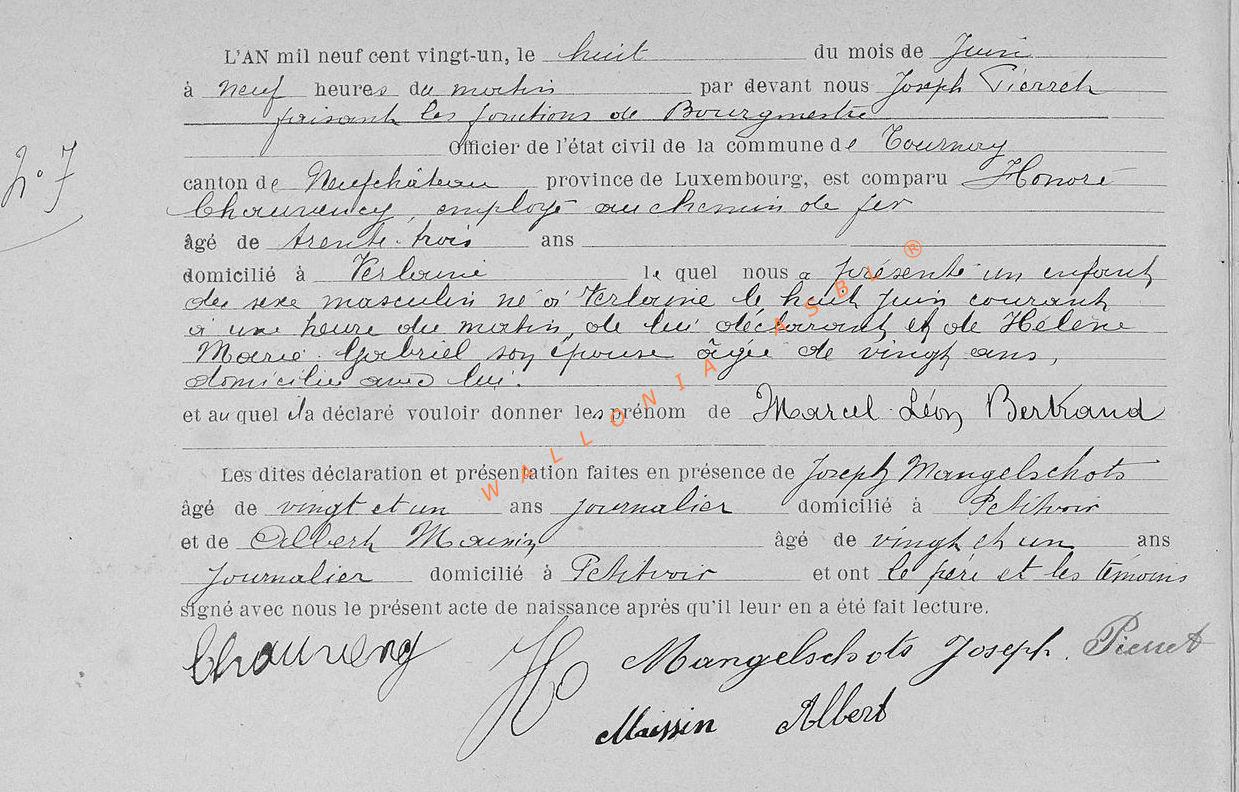 L'AN mil neuf cent vingt-un, le huit du mois de Juin
à neuf heures du matin par devant nous Joseph Pierret
faisant les fonctions de Bourgmestre
Officier de l'état civil de la commune de Tournay
N° 7
canton de Neufchâteau province de Luxembourg, est comparu Honoré
Chauvency, employé au chemin de fer
âgé de trente-trois ans
domicilié à Verlaine le quel nous a présenté un enfant
du sexe masculin né à Verlaine le huit juin courant
à une heure du matin, de lui déclarant, et de Hélène
Marie Gabriel son épouse âgée de vingt ans,
domiciliée avec lui.
et au quel il a déclaré vouloir donner les prénom de Marcel Léon Bertrand
Les dites déclaration et présentation faites en présence de Joseph Mangelschots
âgé de vingt et un ans journalier domicilié à Petitvoir
et de Albert Maissin âgé de vingt et un ans
journalier domicilié à Petitvoir et ont le père et les témoins
signé avec nous le présent acte de naissance après qu'il leur en a été fait lecture.
Chauvency H Mangelschots Joseph. Pierret
Maissin Albert
WALLONIA ASBL ®